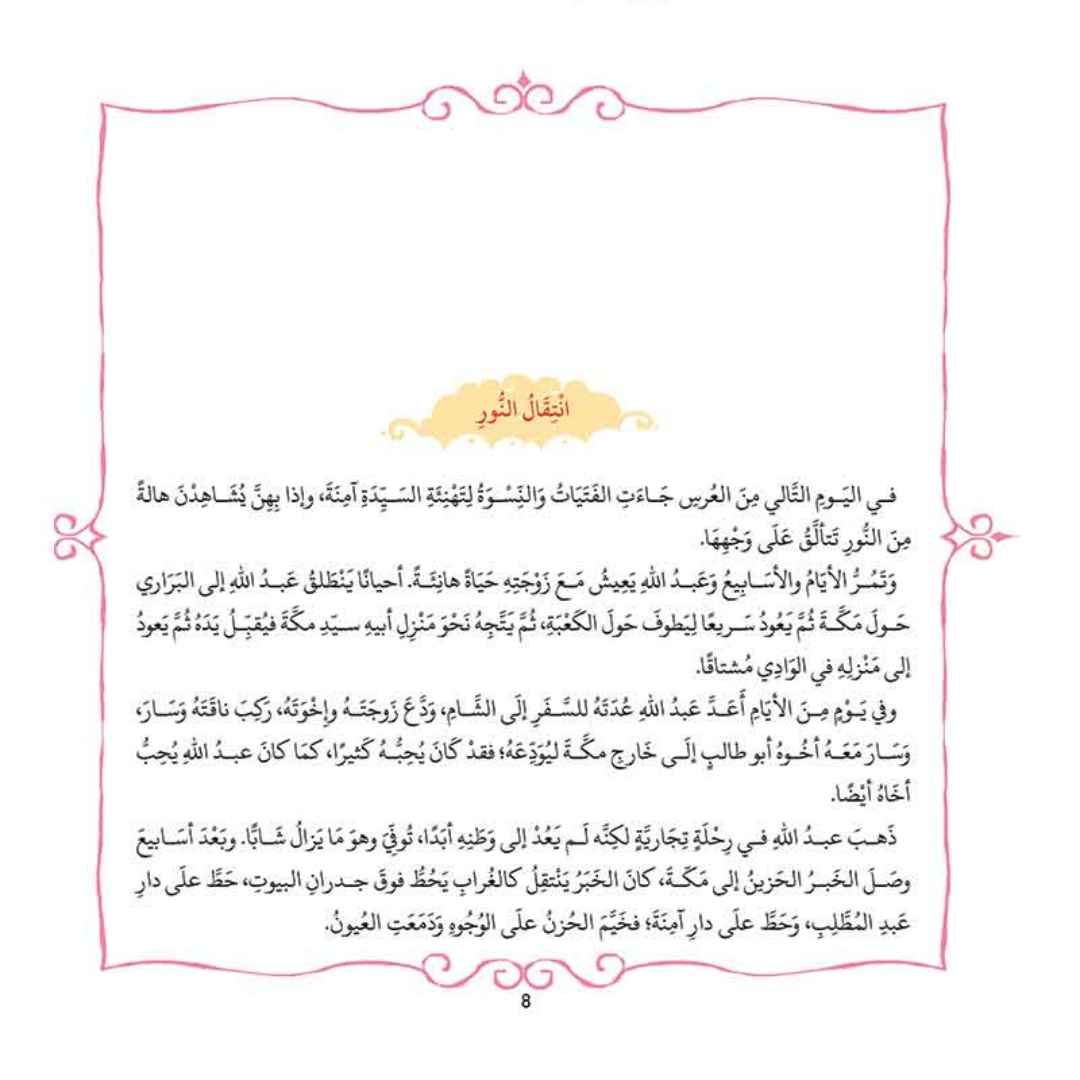 انْتِقَالُ النُّورِ
فـي اليَـومِ التَّالي مِنَ العُرسِ جَـاءَتِ الفَتَيَاتُ وَالنِّسْـوَةُ لِتَهْنِئَةِ السَـيِّدَةِ آمِنَةَ، وإذا بِهِنَّ يُشَـاهِدْنَ هالةً
مِنَ النُّورِ تَتألَّقُ عَلَى وَجْهِهَا.
وَتَمُـرُّ الأيَامُ والأسَـابِيعُ وَعَبـدُ اللهِ يَعِيشُ مَـعَ زَوْجَتِهِ حَيَاةً هانِئَـةً. أحيانًا يَنْطَلقُ عَبـدُ اللهِ إلى البَرَاري
حَـولَ مَكَّـةَ ثُمَّ يَعُودُ سَـريعًا لِيَطوفَ حَولَ الكَعْبَةِ، ثُمَّ يَتَّجِهُ نَحْوَ مَنْزِلِ أبيهِ سـيّدِ مكَّةَ فيُقبِّـلُ يَدَهُ ثُمَّ يَعودُ
إلى مَنْزلِهِ في الوَادِي مُشتاقًا.
وفي يَـوْمٍ مِـنَ الأيَامِ أَعَـدَّ عَبدُ اللهِ عُدَتَهُ للسَّـفَرِ إلَى الشَّـامِ، وَدَّعَ زَوجَتَـهُ وإخْوَتَهُ، رَكِبَ ناقَتَهُ وَسَـارَ،
وَسَـارَ مَعَـهُ أخُـوهُ أبو طالبٍ إلَـى خَارِجِ مكَّـةَ ليُوَدِّعَهُ؛ فقدْ كَانَ يُحِبُّـهُ كَثيرًا، كمَا كانَ عبـدُ اللهِ يُحِبُّ
أخَاهُ أيْضًا.
ذَهـبَ عبـدُ اللهِ فـي رِحْلَةٍ تِجَاريَّةٍ لكِنَّه لَـم يَعُدْ إلى وَطَنِهِ أبَدًا، تُوفِّيَ وهوَ مَا يَزالُ شَـابًّا. وبَعْدَ أسَـابيعَ
وصَـلَ الخَبـرُ الحَزينُ إلى مَكّـةَ، كانَ الخَبَرُ يَنْتقِلُ كالغُرابِ يَحُطُّ فوقَ جـدرانِ البيوتِ، حَطَّ علَى دارِ
عَبدِ المُطَّلِبِ، وَحَطَّ علَى دارِ آمِنَةَ؛ فخَيَّمَ الحُزنُ علَى الوُجُوهِ وَدَمَعَتِ العُيونُ.
8